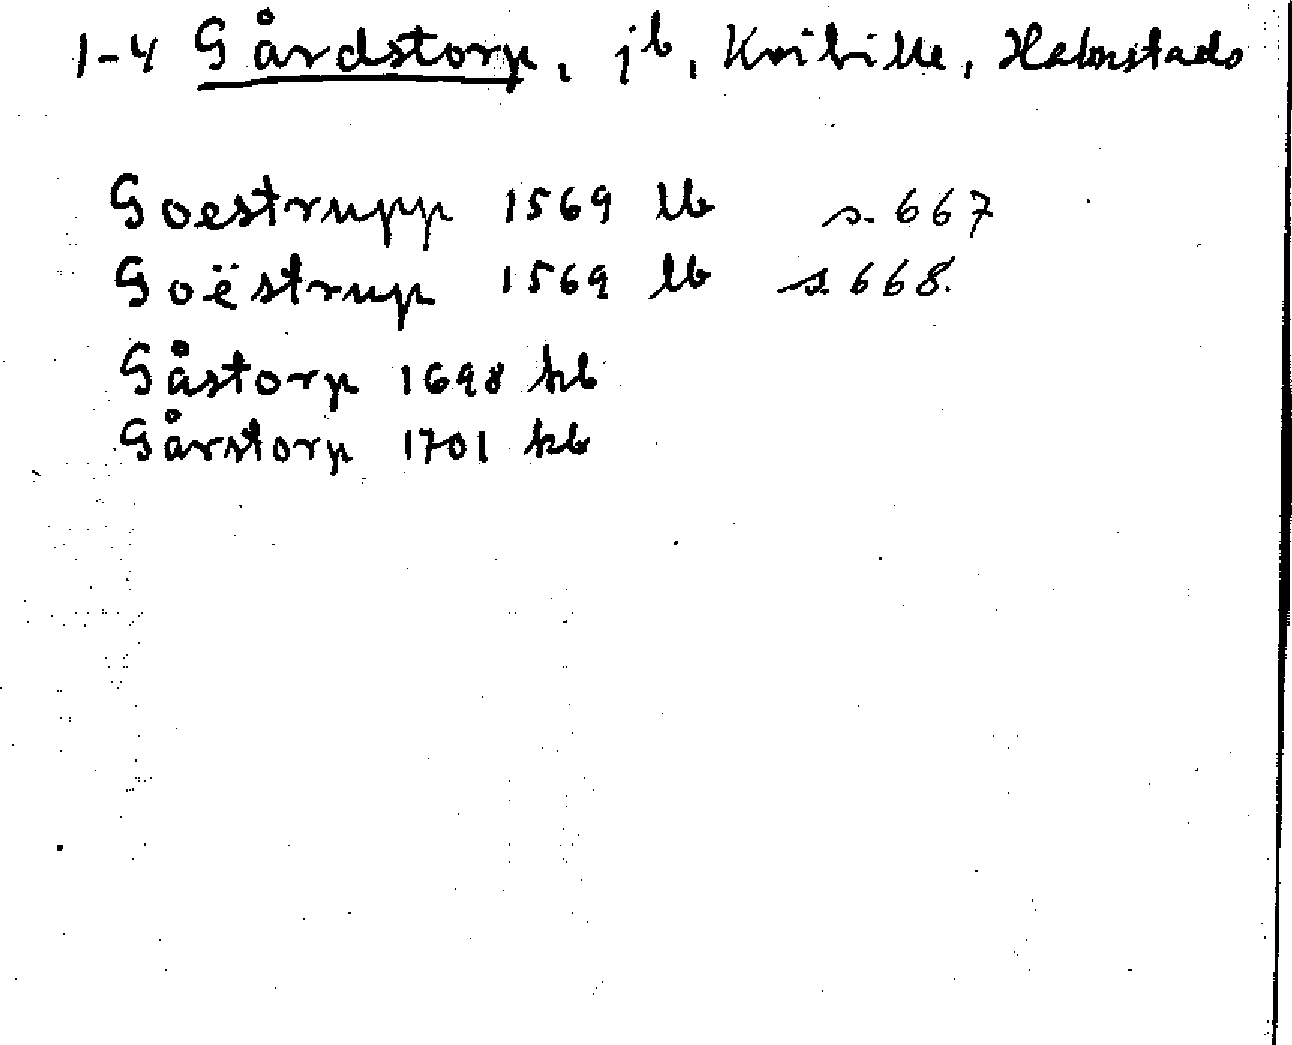 1-4 Gårdstorp, jb, Kvibille, Halmstads
Goestrupp 1569 lb s. 667
Goëstrup 1569 lb s. 668.
Gåstorp 1698 kb
Gårstorp 1701 kb